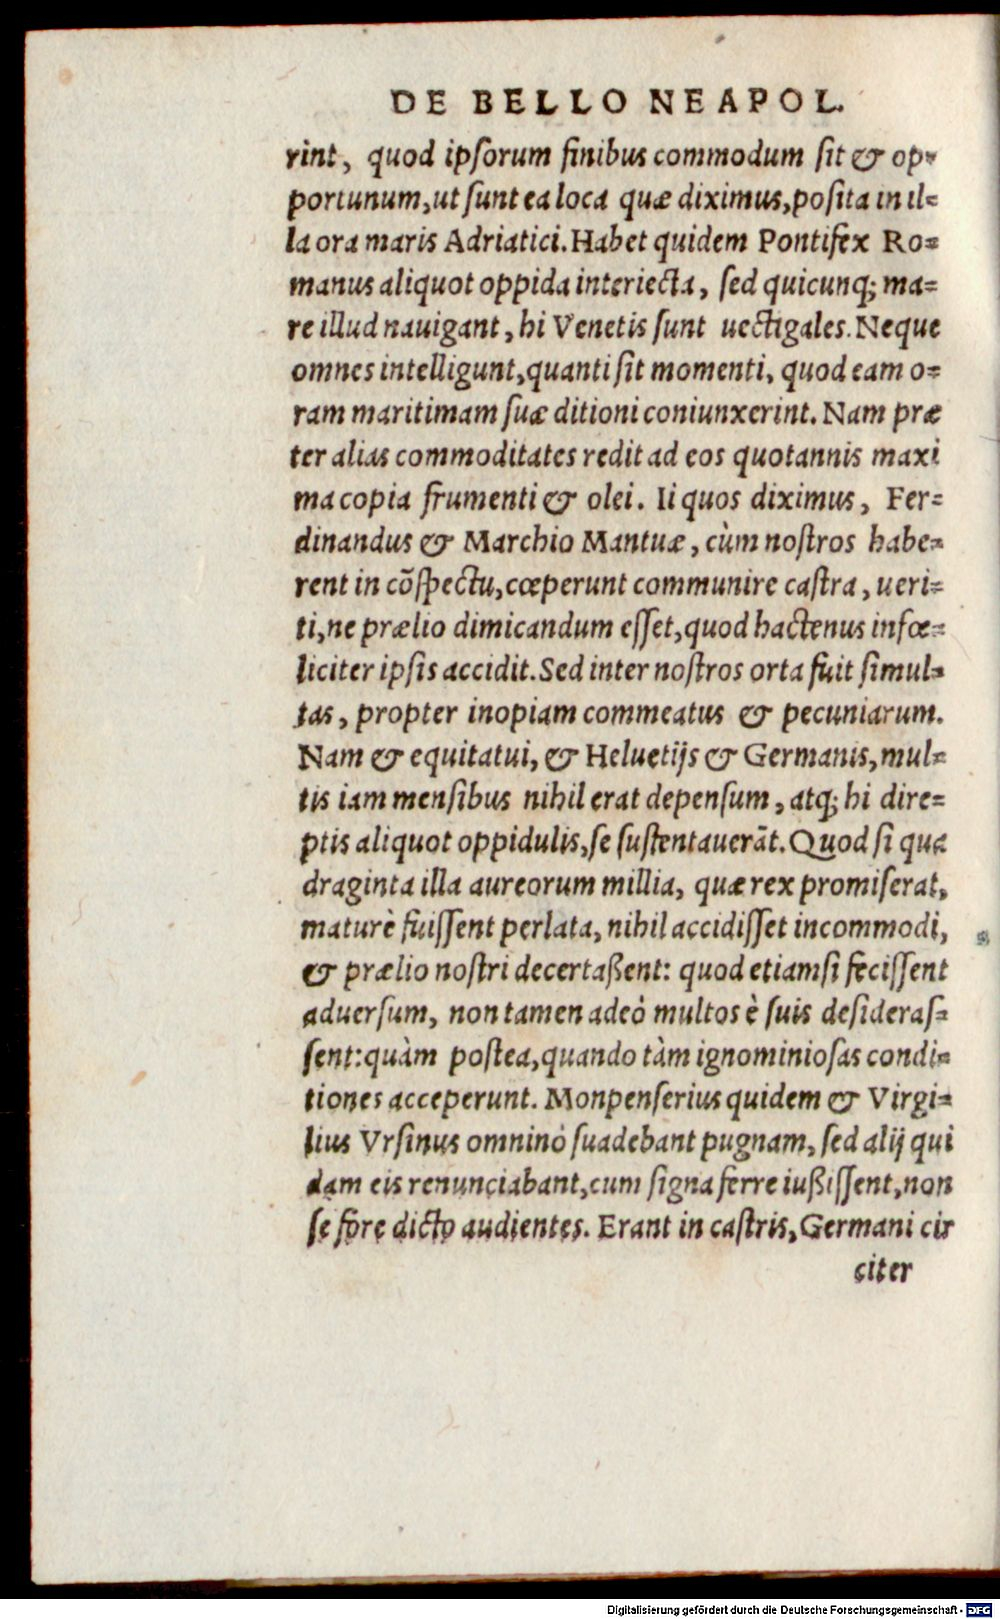 DE BELLO NEAPOL.
rint, quod ipsorum finibus commodum sit & op-
portunum, ut sunt ea loca quæ diximus, posita in il-
la ora maris Adriatici. Habet quidem Pontifex Ro-
manus aliquot oppida interiecta, sed quicunq; ma-
re illud nauigant, hi Venetis sunt uectigales. Neque
omnes intelligunt, quanti sit momenti, quod eam o-
ram maritimam suæ ditioni coniunxerint. Nam præ
ter alias commoditates redit ad eos quotannis maxi
ma copia frumenti & olei. Ii quos diximus, Fer-
dinandus & Marchio Mantuæ, cùm nostros habe-
rent in cõspectu, cœperunt communire castra, ueri-
ti, ne prælio dimicandum esset, quod hactenus infœ-
liciter ipsis accidit. Sed inter nostros orta fuit simul-
tas, propter inopiam commeatus & pecuniarum.
Nam & equitatui, & Heluetijs & Germanis, mul-
tis iam mensibus nihil erat depensum, atq; hi dire-
ptis aliquot oppidulis, se sustentauerãt. Quod si qua
draginta illa aureorum millia, quæ rex promiserat,
maturè fuissent perlata, nihil accidisset incommodi,
& prælio nostri decertaßent: quod etiamsi fecissent
aduersum, non tamen adeò multos è suis desideras-
sent: quàm postea, quando tàm ignominiosas condi-
tiones acceperunt. Monpenserius quidem & Virgi-
lius Vrsinus omninò suadebant pugnam, sed alij qui
dam eis renunciabant, cum signa ferre iußissent, non
se fore dicto audientes. Erant in castris, Germani cir
citer
Digitalisierung gefördert durch die Deutsche Forschungsgemeinschaft - DFG